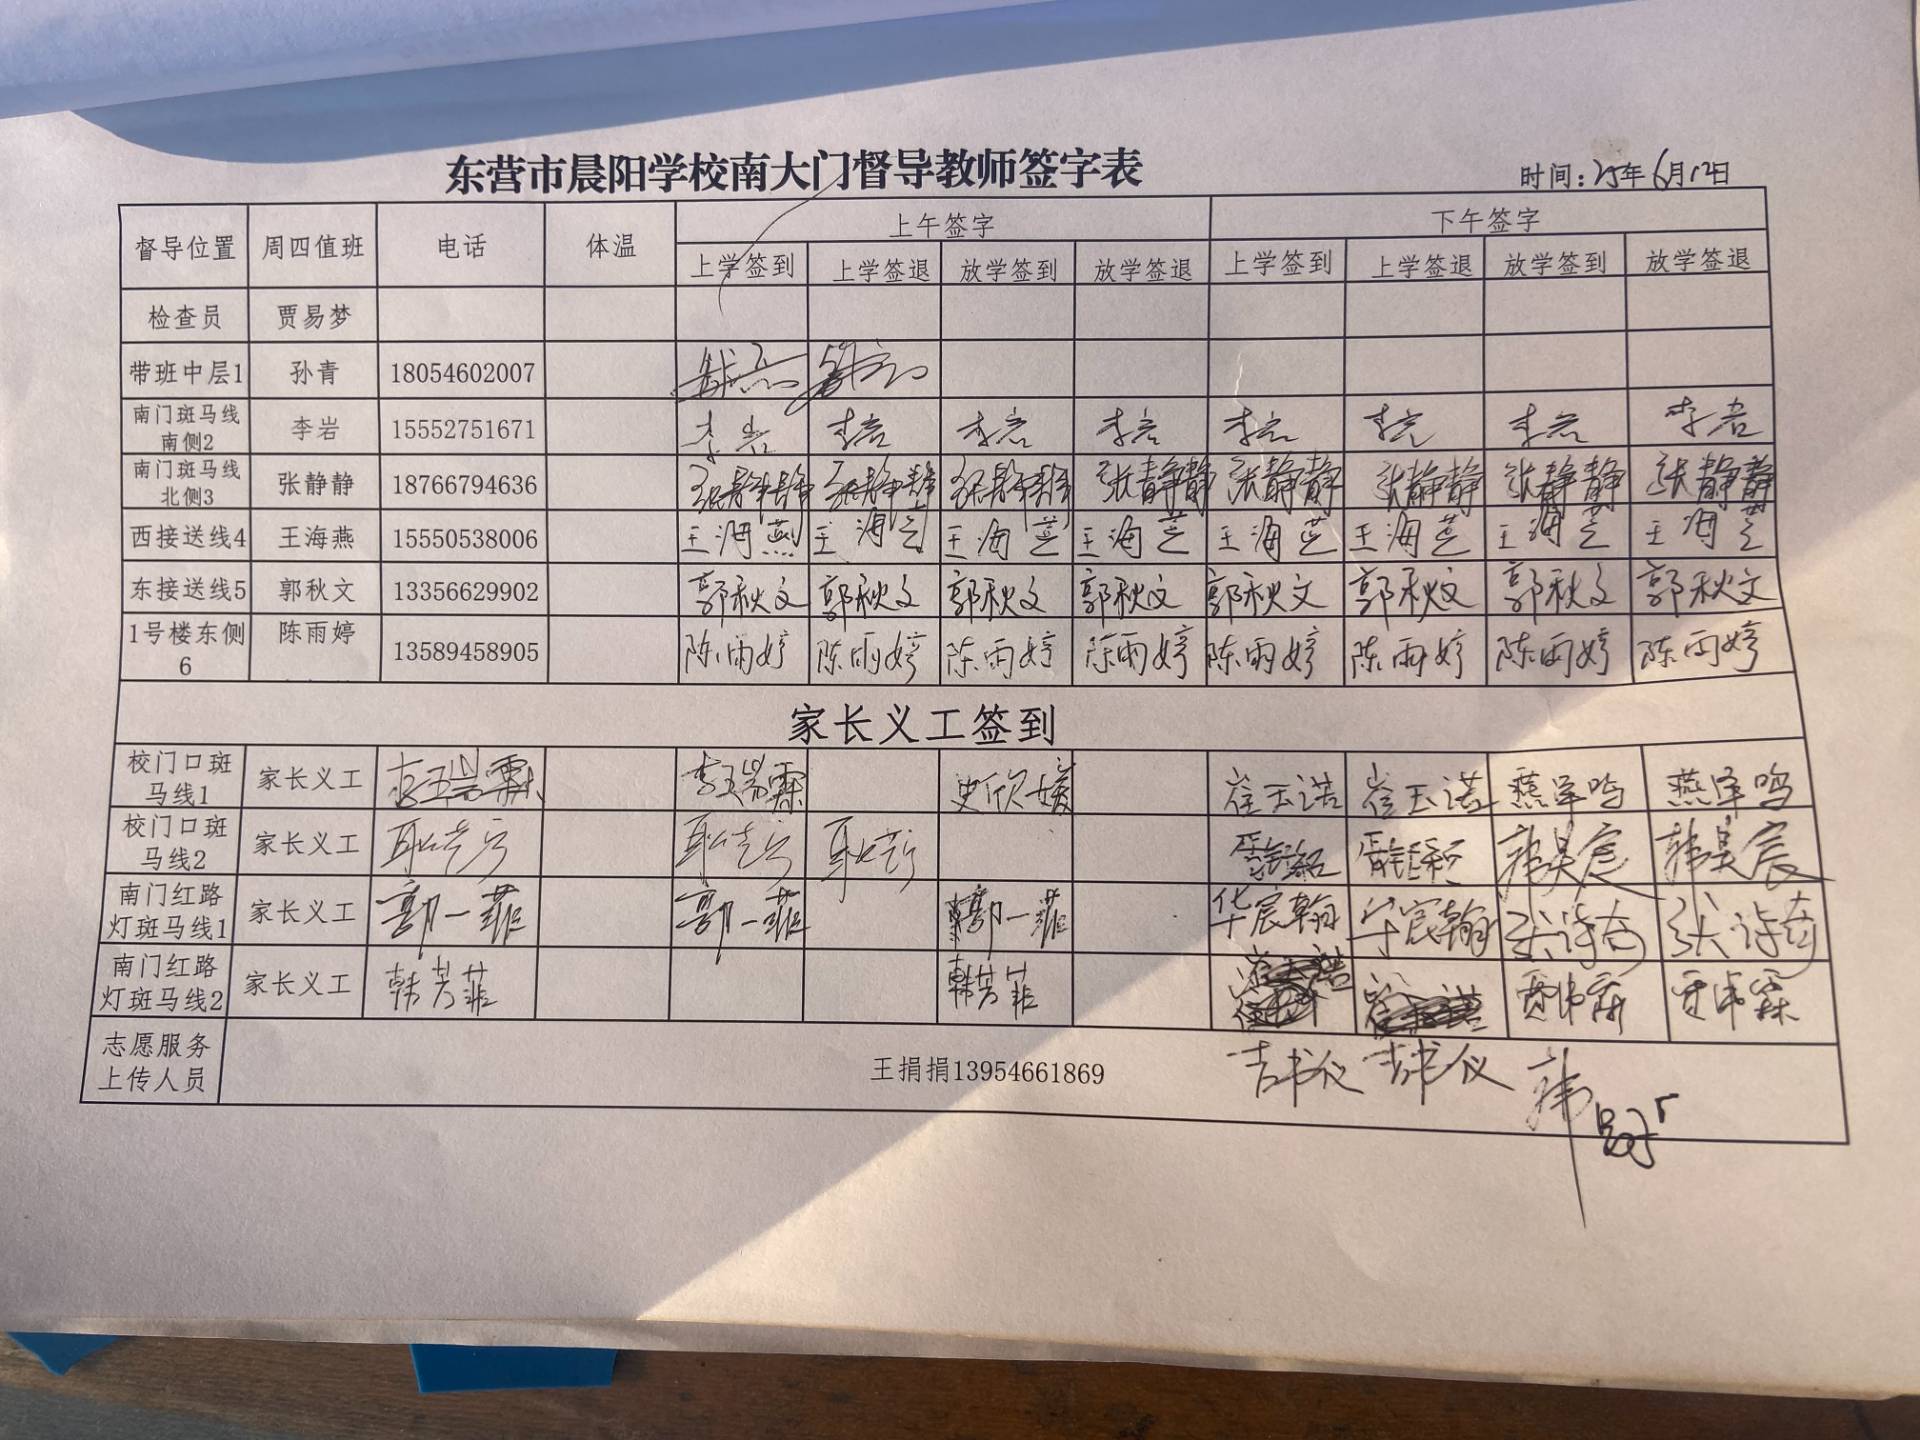 东营市晨阳学校南大门督导教师签字表
时间:25年6月12日
督导位置 周四值班 电话 体温 上午签字 下午签字
上学签到 上学签退 放学签到 放学签退 上学签到 上学签退 放学签到 放学签退
检查员 贾易梦
带班中层1 孙青 18054602007
南门斑马线南侧2 李岩 15552751671 李岩 李岩 李岩 李岩 李岩 李岩 李岩 李岩
南门斑马线北侧3 张静静 18766794636 张静静 张静静 张静静 张静静 张静静 张静静 张静静 张静静
西接送线4 王海燕 15550538006 王海燕 王海 王海 王海 王海 王海 王海 王海
东接送线5 郭秋文 13356629902 郭秋文 郭秋文 郭秋文 郭秋文 郭秋文 郭秋文 郭秋文 郭秋文
1号楼东侧6 陈雨婷 13589458905 陈雨婷 陈雨婷 陈雨婷 陈雨婷 陈雨婷 陈雨婷 陈雨婷 陈雨婷
家长义工签到
校门口斑马线1 家长义工 李瑞霖 李瑞霖 史欣媛 崔玉诺 崔玉诺 燕泽鸣 燕泽鸣
校门口斑马线2 家长义工 韩昊宸 韩昊宸
南门红路灯斑马线1 家长义工 郭一菲 郭一菲 郭一菲 华宸翰 华宸翰 张诗奇 张诗奇
南门红路灯斑马线2 家长义工 韩芳菲 韩芳菲
志愿服务上传人员 王捐捐13954661869 吉书仪 吉书仪